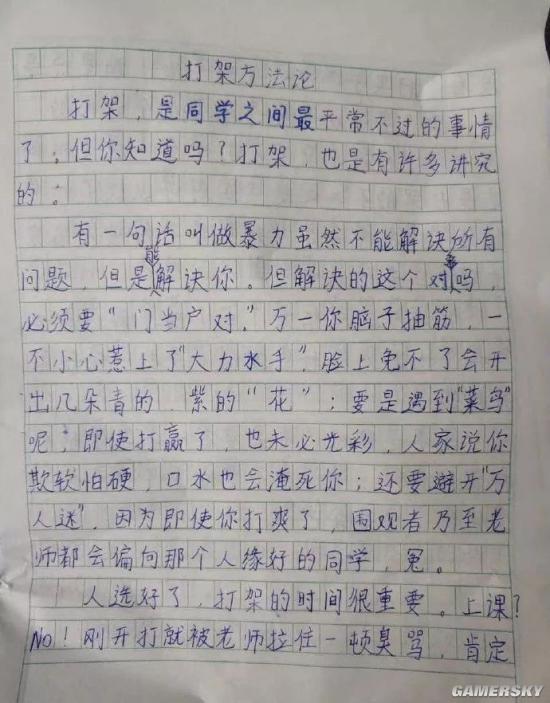 打架方法论
打架,是同学之间最平常不过的事情
了;但你知道吗?打架,也是有许多讲究
的:
有一句话叫做暴力虽然不能解决所有
问题,但是能解决你。但解决的这个对象吗,
必须要"门当户对。"万一你脑子抽筋,一
不小心惹上了"大力水手",脸上免不了会开
出几朵青的、紫的"花";要是遇到"菜鸟"
呢;即使打赢了,也未必光彩,人家说你
欺软怕硬,口水也会淹死你;还要避开"万
人迷",因为即使你打爽了,围观者乃至老
师都会偏向那个人缘好的同学,冤。
人选好了,打架的时间很重要。上课?
No!刚开打就被老师拉住一顿臭骂,肯定
GAMERSKY